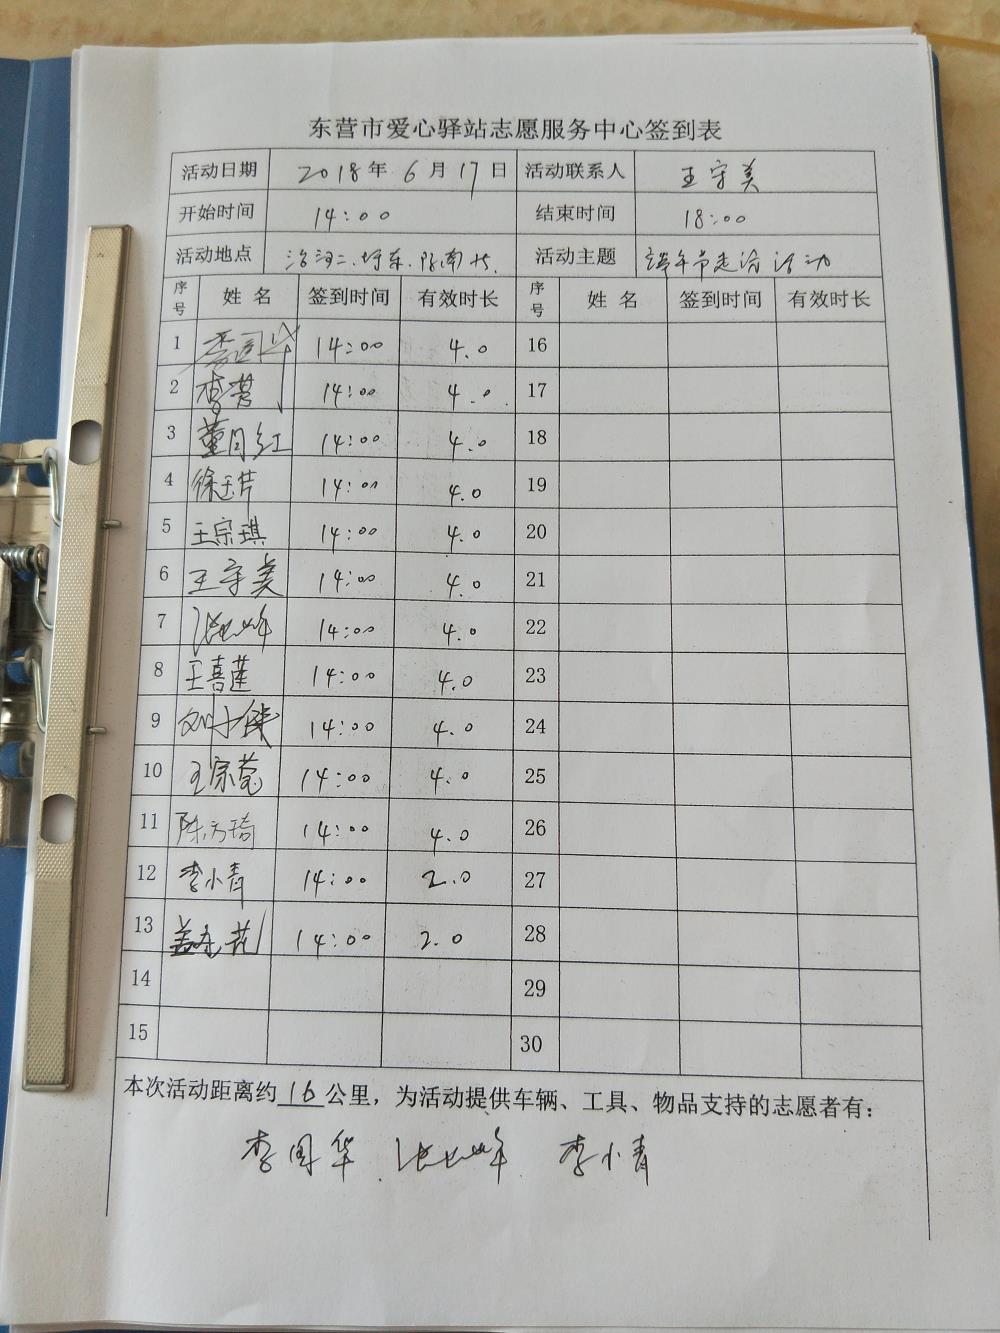 东营市爱心驿站志愿服务中心签到表
活动日期 2018年 6月 17日 活动联系人 王守美
开始时间 14:00 结束时间 18:00
活动地点 活动主题 端午节走访活动
序号 姓名 签到时间 有效时长 序号 姓名 签到时间 有效时长
1 李国华 14:00 4.0 16
2 李营 14:00 4.0 17
3 董月红 14:00 4.0 18
4 徐玉芹 14:00 4.0 19
5 王宗琪 14:00 4.0 20
6 王守美 14:00 4.0 21
7 14:00 4.0 22
8 王喜莲 14:00 4.0 23
9 刘小 14:00 4.0 24
10 王宗莹 14:00 4.0 25
11 陈方琦 14:00 4.0 26
12 李小青 14:00 2.0 27
13 盖 花 14:00 2.0 28
14 29
15 30
本次活动距离约16公里，为活动提供车辆、工具、物品支持的志愿者有：
李国华 李小青